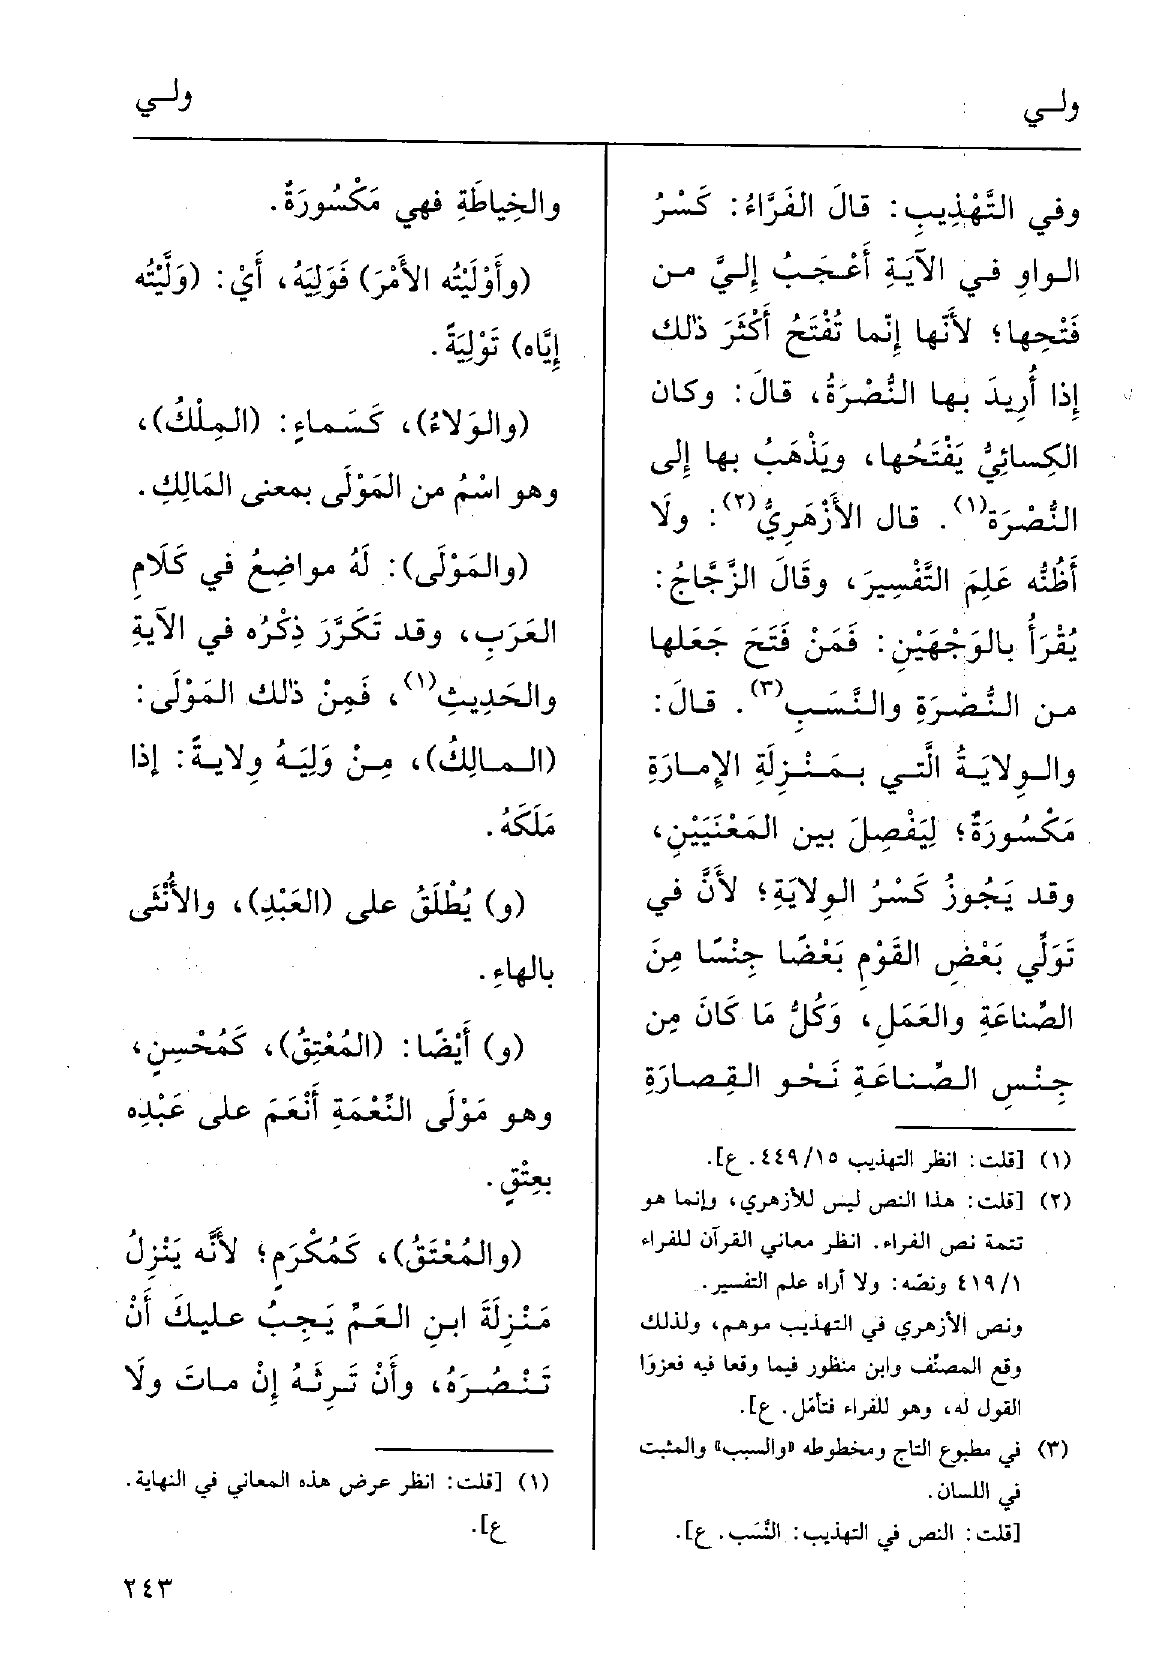 ولي
ولي
وفي التَّهْذِيبِ: قالَ الفَرَّاءُ: كَسْرُ
الواوِ في الآيَةِ أَعْجَبُ إِليَّ من
فَتْحِها؛ لأَنّها إِنّما تُفْتَحُ أَكْثَرَ ذلك
إِذا أُرِيدَ بها النُّصْرَةُ، قالَ: وكان
الكِسائِيُّ يَفْتَحُها، ويَذْهَبُ بها إِلى
النُّصْرَة(١). قال الأَزْهَرِيُّ(٢): ولَا
أَظُنُّه عَلِمَ التَّفْسِيرَ، وقَالَ الزَّجَّاجُ:
يُقْرَأُ بالوَجْهَيْنِ: فَمَنْ فَتَحَ جَعَلها
من النُّصْرَةِ والنَّسَبِ(٣). قالَ:
والوِلايَةُ الَّتي بمَنْزِلَةِ الإِمارَةِ
مَكْسُورَةٌ؛ لِيَفْصِلَ بين المَعْنَيَيْنِ،
وقد يَجُوزُ كَسْرُ الوِلايَةِ؛ لأَنَّ في
تَوَلِّي بَعْضِ القَوْمِ بَعْضًا جِنْسًا مِنَ
الصِّناعَةِ والعَمَلِ، وَكُلُّ مَا كَانَ مِن
جِنْسِ الصِّناعَةِ نَحْو القِصارَةِ
(١) [قلت: انظر التهذيب ٤٤٩/١٥. ع].
(٢) [قلت: هذا النص ليس للأزهري، وإنما هو
تتمة نص الفراء. انظر معاني القرآن للفراء
٤١٩/١ ونصّه: ولا أراه علم التفسير.
ونص الأزهري في التهذيب موهم، ولذلك
وقع المصنّف وابن منظور فيما وقعا فيه فعزوَا
القول له، وهو للفراء فتأمّل. ع].
(٣) في مطبوع التاج ومخطوطه «والسبب» والمثبت
في اللسان.
[قلت: النص في التهذيب: النَّسَب. ع].
والخِياطَةِ فهي مَكْسُورَةٌ.
(وأَوْلَيْتُه الأَمْرَ) فَوَلِيَهُ، أَيْ: (وَلَّيْتُه
إِيَّاه) تَوْلِيَةً.
(والوَلاءُ)، كَسَماءٍ: (المِلْكُ)،
وهو اسْمُ من المَوْلَى بمعنى المَالِكِ.
(والمَوْلَى): لَهُ مواضِعُ في كَلَامِ
العَرَبِ، وقد تَكَرَّرَ ذِكْرُه في الآيةِ
والحَدِيثِ(١)، فَمِنْ ذلك المَوْلَى:
(المالِكُ)، مِنْ وَلِيَهُ وِلايةً: إذا
مَلَكَهُ.
(و) يُطْلَقُ على (العَبْدِ)، والأُنْثَى
بالهاءِ.
(و) أَيْضًا: (المُعْتِقُ)، كَمُحْسِنٍ،
وهو مَوْلَى النِّعْمَةِ أَنْعَمَ على عَبْدِه
بعِتْقٍ.
(والمُعْتَقُ)، كَمُكْرَمٍ؛ لأَنَّه يَنْزِلُ
مَنْزِلَةَ ابنِ العَمِّ يَجِبُ عليكَ أَنْ
تَنْصُرَهُ، وأَنْ تَرِثَهُ إِنْ ماتَ ولَا
(١) [قلت: انظر عرض هذه المعاني في النهاية.
ع].
٢٤٣